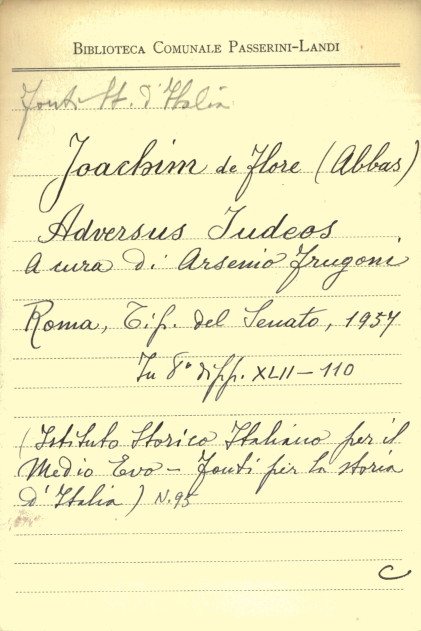 BIBLIOTECA COMUNALE PASSERINI-LANDI
Fonti St. d'Italia
Joachim de Flore (Abbas)
Adversus Iudeos
A cura di Arsenio Frugoni
Roma, Tip. del Senato, 1957
In 8° di pp. XLII-110
(Istituto Storico Italiano per il
Medio Evo - Fonti per la storia
d'Italia) N. 95
C